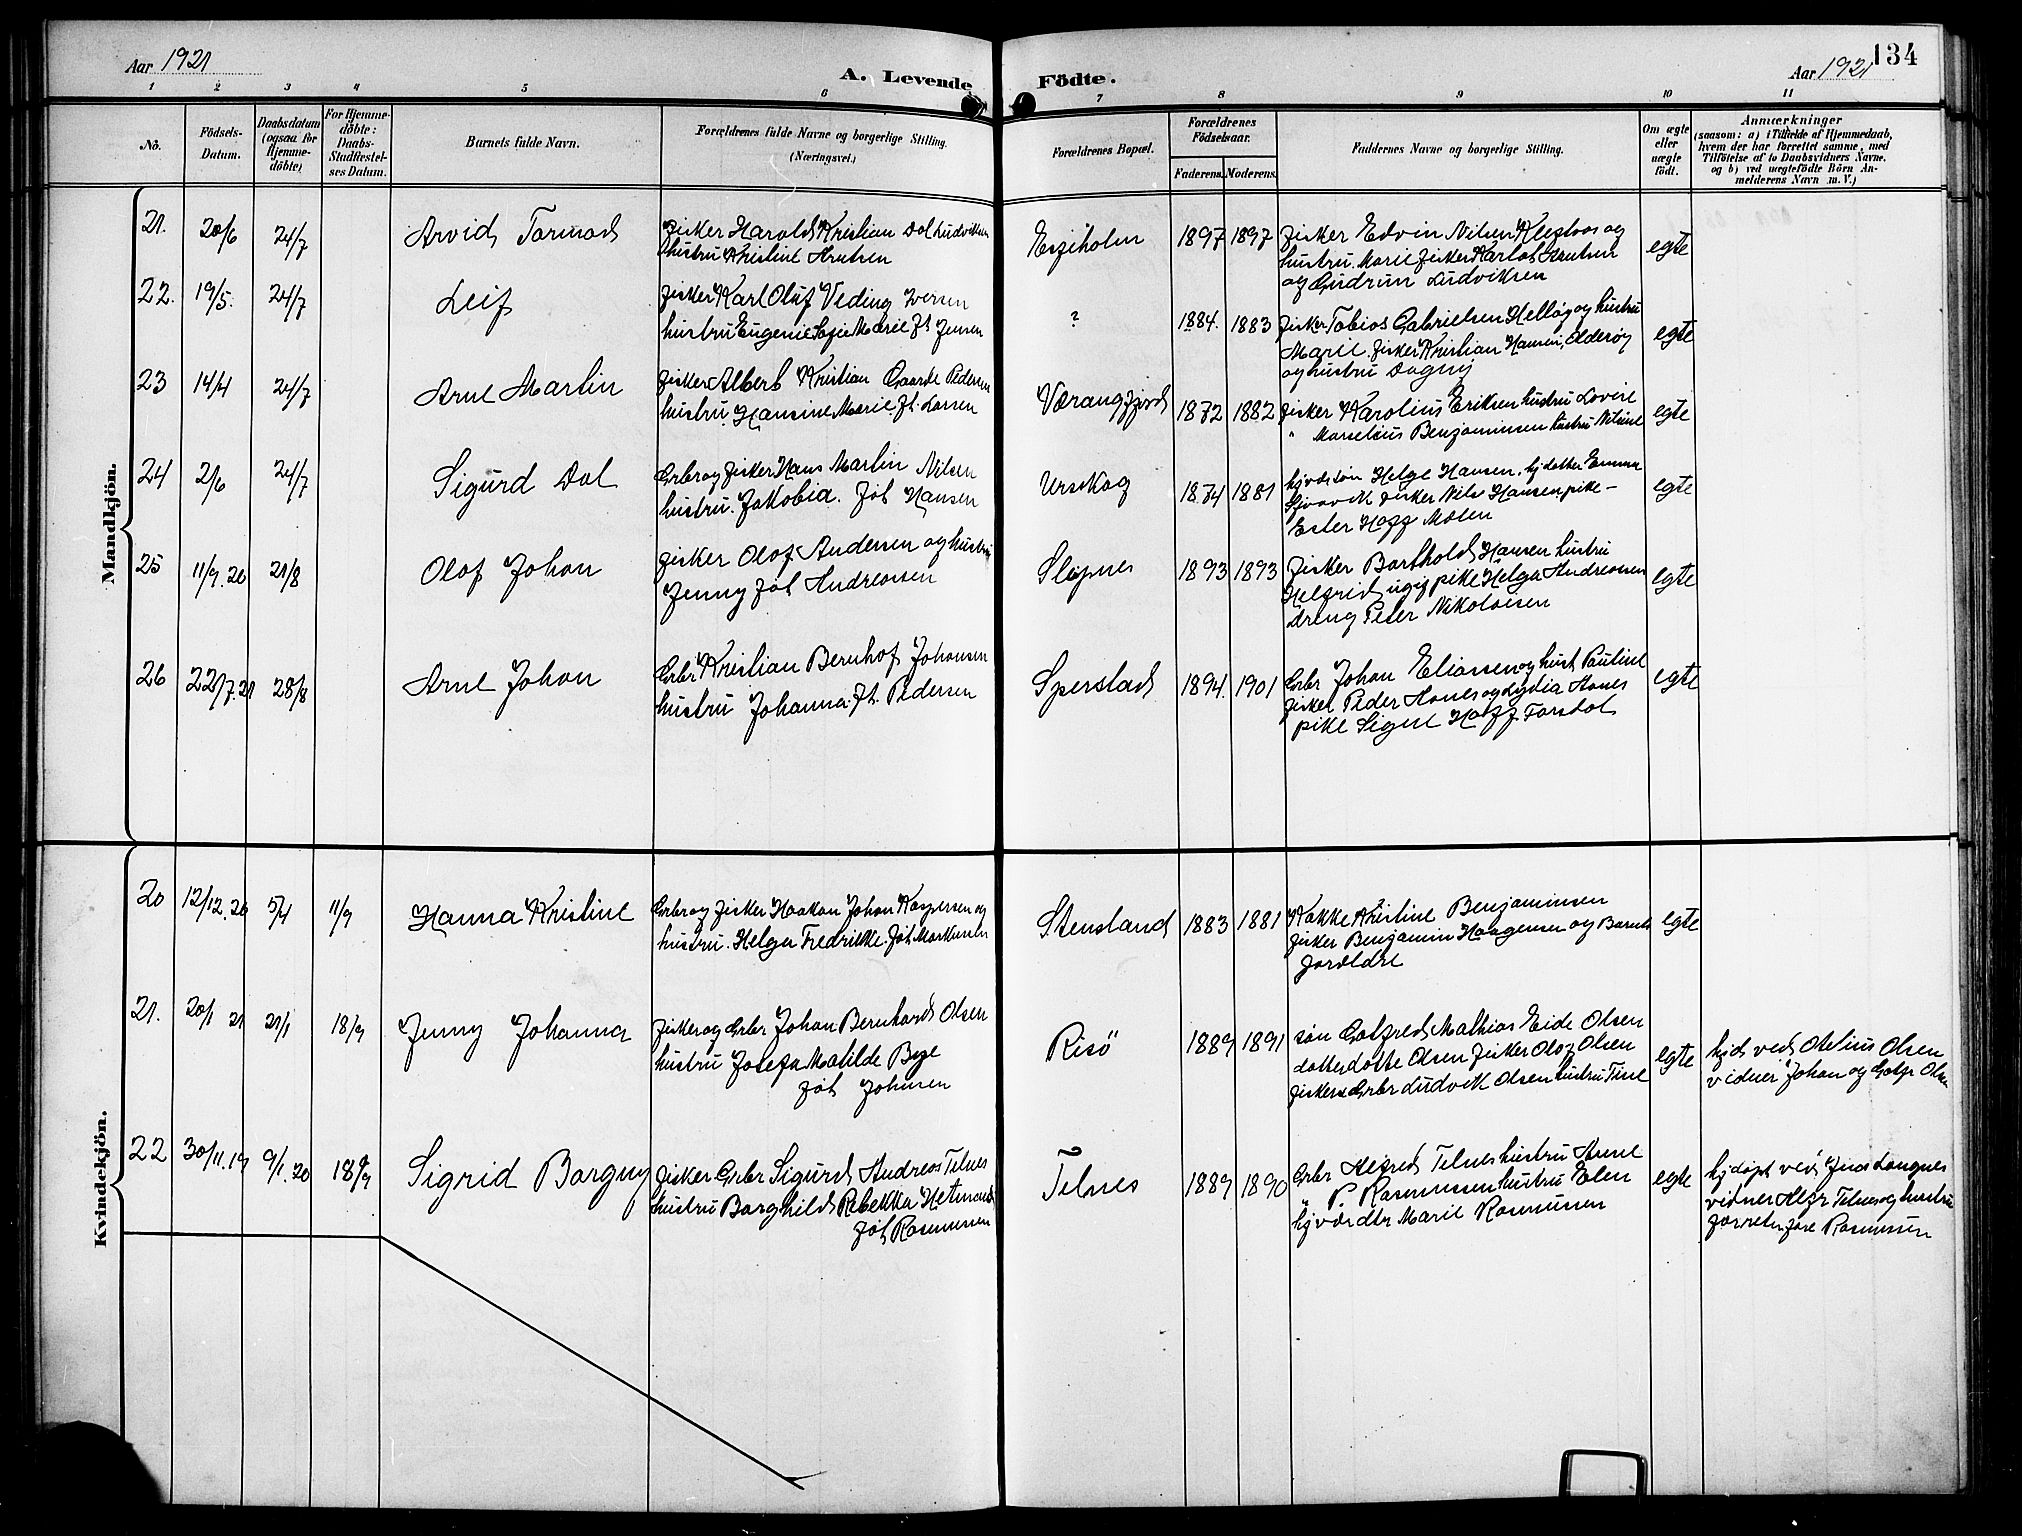 Aar 1921
A. Levende Födte.
Aar 1921
134
1 2 3 4 5 6 7 8 9 10 11
No.
Födsels-Datum.
Daabsdatum (ogsaa for Hjemme-döbte)
For Hjemme-döbte: Daabs-Stadfæstel-ses Datum.
Barnets fulde Navn.
Forældrenes fulde Navne og borgerlige Stilling.
(Næringsvei.)
Forældrenes Bopæl.
Forældrenes Födselsaar.
Faderens. Moderens.
Faddernes Navne og borgerlige Stilling.
Om ægte eller uægte födt.
Anmærkninger
(saasom: a) i Tilfælde af Hjemmedaab,
hvem der har forrettet samme, med
Tilföielse af to Daabsvidners Navne.
og b) ved uægtefödte Börn An-
melderens Navn m. V.)
Mandkjön.
21. 20/6 24/7 Arvid Tormod
fisker Harald Kristian Dal Ludviksen
hustru Kristine Knutsen
1897 1897
fisker Edvin Nilsen og
hustru Marie fisker Knutsen
og Gudrun Ludviksen
egte
22. 19/5. 24/7 Leif
fisker Karl Oluf Veding Iversen
hustru Eugenie Sofie Marie ft Jensen
? 1884. 1883
fisker Tobias Gabrielsen Helløy og hustru
Marie. fisker Kristian Hansen, Olderøy
og hustru Dagny
egte
23 14/4 24/7 Arne Martin
fisker Albert Kristian Gaarde Pedersen
hustru Hansine Marie ft. Larsen
Værangfjord 1872 1882
fisker Karolius Eriksen hustru Lovise
" Marselius Benjaminsen hustru Nilsine
egte
24 2/6 24/7 Sigurd Dal
Grbr og fisker Hans Martin Nilsen
hustru. Jakobia. føt Hansen
Urskog 1874 1881
hjvær søn Helge Hansen. hj datter Emma
fisker Nils Hansen, pike –
Ester Hoff Molen
egte
25 11/9. 20 21/8 Olaf Johan
fisker Olaf Andersen og hustru
Jenny føt Andreassen
1893 1893
fisker Barthold Hansen hustru
Helfrid ugig pike Helga Andreassen
dreng Peter Nikolaisen
egte
26 22/7. 21 28/8 Arne Johan
Grbr Kristian Bernhof Johansen
hustru Johanna. ft. Pedersen
Sperstad 1894. 1901
Grbr Johan Eliassen og hust Pauline
fisker Peder Hanes og Lydia Hanes
pike Signe Hoff Forsdal
egte
Kvindekjön.
20 12/12. 20 5/4 11/9 Hanna Kristine
Grbr og fisker Haakon Johan Kaspersen og
hustru. Helga Fredrikke. føt Markussen
Stensland 1883 1881
Kokke Kristine Benjaminsen
fisker Benjamin Haagensen og Barnets
forældre
egte
21. 20/1 21 21/1 18/9 Jenny Johanna
fisker og Grbr Johan Bernhard Olsen
hustru Josefa Matilde Bye
føt Johnsen
Risö 1889 1891
søn Gotfred Mathias Eide Olsen
datter Dotte Olsen fisker Olaf Olsen
fisker & Grbr Ludvik Olsen hustru Tine
egte
hjd ved Otelius Olsen
vidner Johan og Gotfr Olsen
22 30/11. 19 9/1. 20 18/9 Sigrid Borgny
fisker Grbr Sigurd Andreas Telnes
hustru Borghild Rebekka Hetmond
føt Rasmussen
Telnes 1889 1890
Grbr Alfred Telnes hustru Anne
" P. Rasmussen hustru Elen
hjvær dtr Marie Rasmussen
egte
hj døpt ved Jens Langnes
vidner Alfr Telnes og hustru
Rasmussen